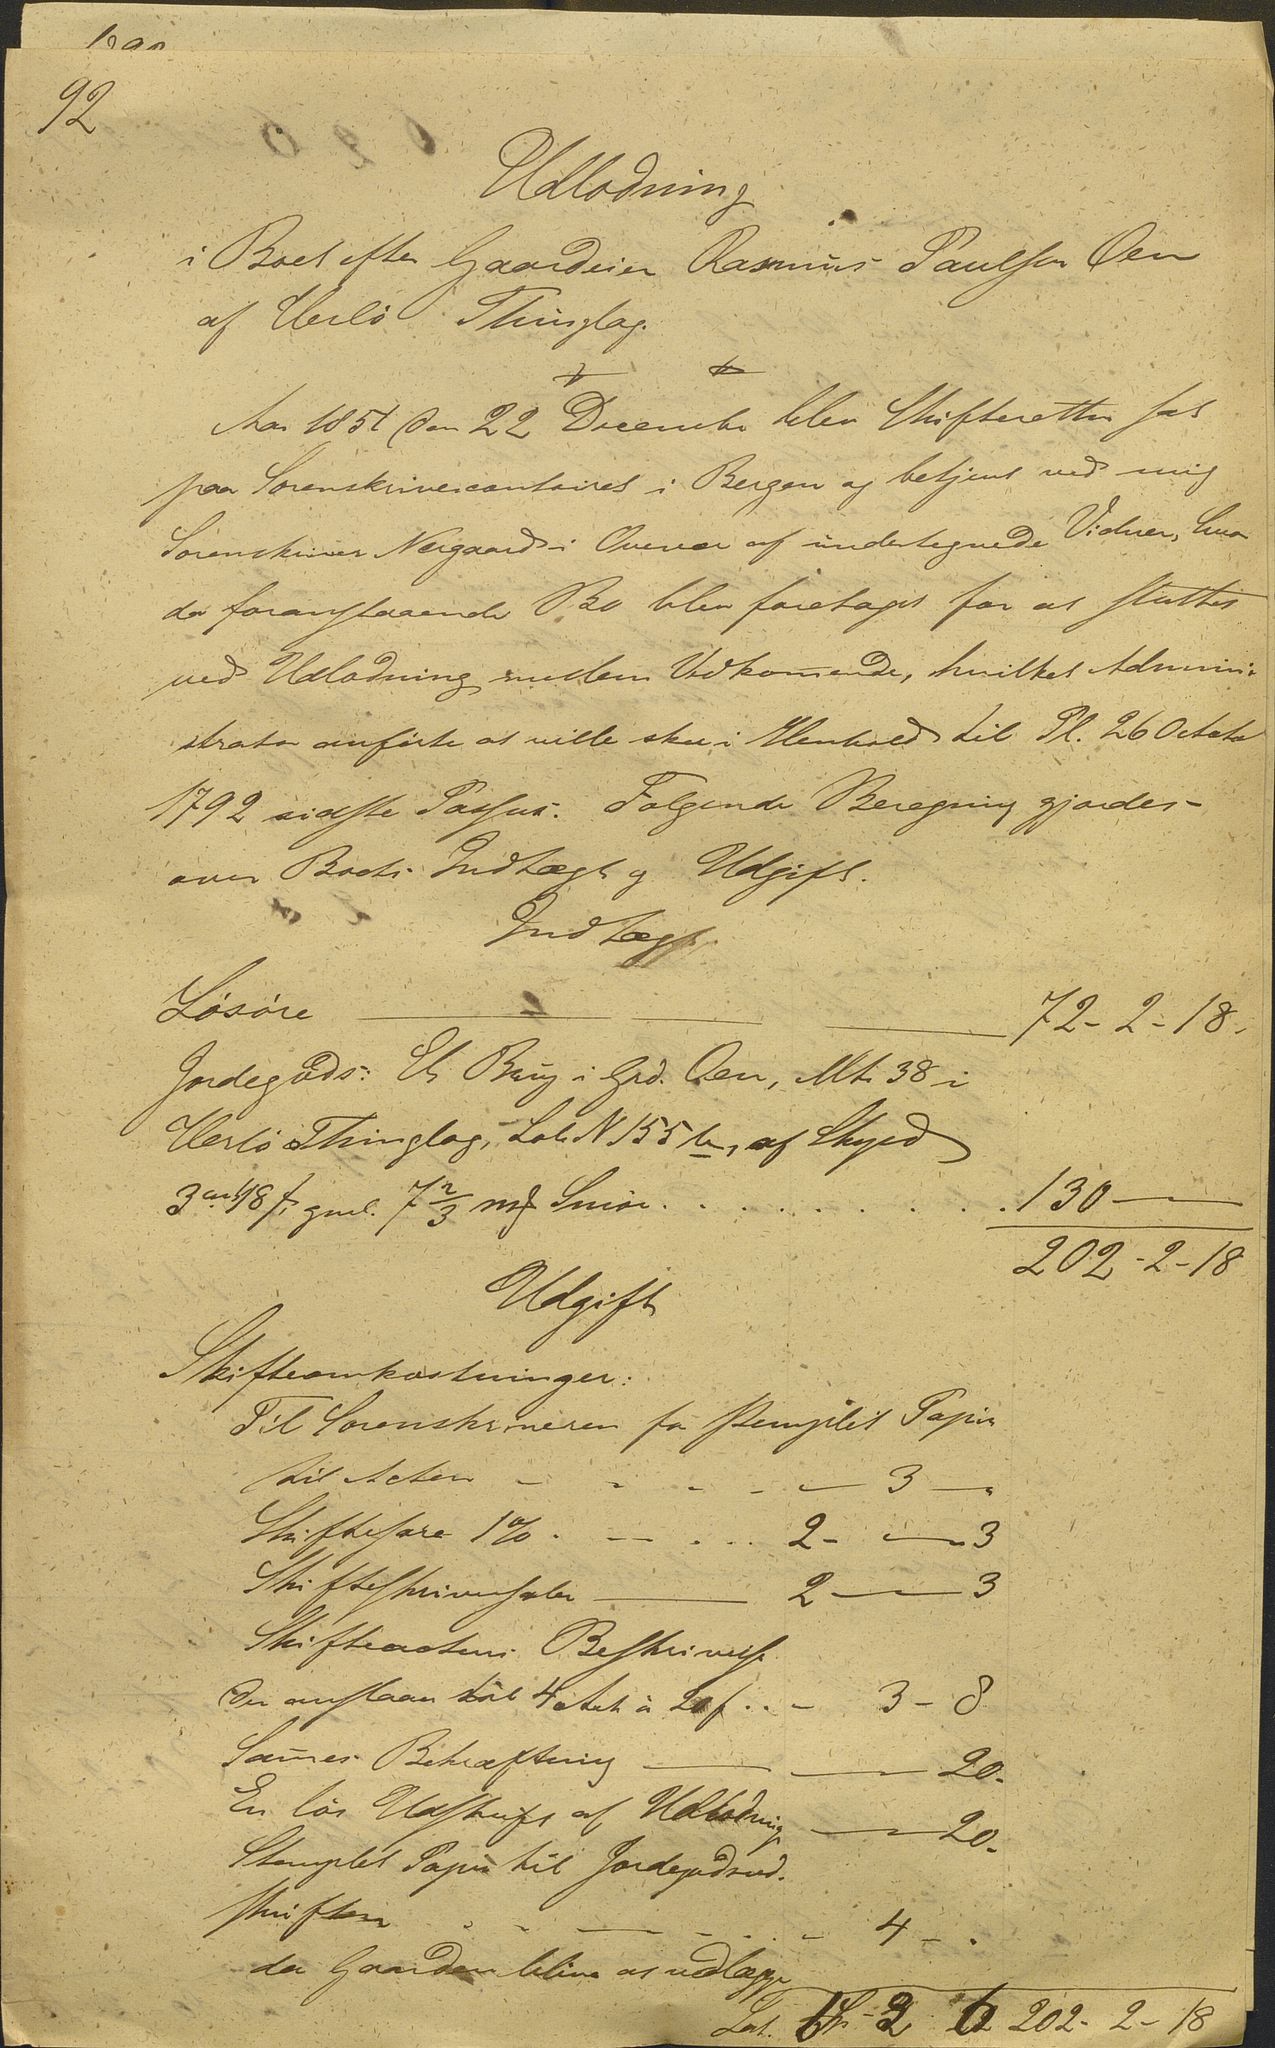 92
Udlodning
i Boet efter Gaardeier Rasmus Paulsen Oen
af Herlö Thinglag.
Aar 1851 den 22 December blev Skifteretten sat
paa Sorenskrivercontoiret i Bergen og betjent ved mig
Sorenskriver Nergaard i Overvær af undertegnede Vidner, hvor
da foranstaaende Bo blev foretaget for at sluttes
ved Udlodning mellem Vedkommende, hvilket Admini-
strator anförte at ville skee i Henhold til Pl. 26 October
1792 sidste Passus. Fölgende Beregning gjordes
over Boets Indtægt og Udgift.
Indtægt
Lösöre 72-2-18.
Jordegods: Et Brug i Grd. Oen, Mt. 38 i
Herlö Thinglag, Lob. N 155 b, af Skyld
3 18 β, gml. 7 2/3 mβ Smör . . . . . . . . . 130 —
202-2-18
Udgift
Skifteomkostninger:
Til Sorenskriveren for stemplet Papir
til Acten - - - - 3 -
Skiftesare 1% . - . . . 2 - - 3
Skifteskriversaler 2 - 3
Skifteactens Beskrivelse
der anslaaes til 4 Ark à 20 β . . - 3 - 8
Sammes Bekræftning 20.
En lös Udskrift af Udlodning 20.
Stemplet Papir til Jordegodsud-
skriften . . - . . - 4 - .
da Gaarden bliver at udlægge
Lat. 202-2-18